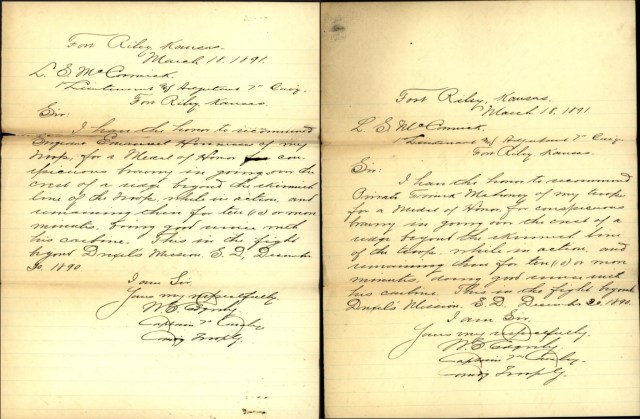 Fort Riley, Kansas.
March 18, 1891.
L. S. McCormick.
1st Lieutenant & Adjutant 7th Cav'y.
Fort Riley, Kansas.
Sir:
I have the honor to recommend
Sergeant Emanuel of my
troop, for a Medal of Honor for con-
spicuous bravery in going over the
crest of a ridge beyond the skirmish
line of the troop, while in action, and
remaining there for ten (10) or more
minutes, doing good service with
his carbine. This in the fight
beyond Drexel's Mission, S. D., December
30, 1890.
I am Sir.
Yours very respectfully.
W.
Captain 7th Cavalry
Comdg Troop G.
Fort Riley, Kansas.
March 18, 1891.
L. S. McCormick.
1st Lieutenant & Adjutant 7th Cav'y
Fort Riley Kansas.
Sir:
I have the honor to recommend
Private of my troop
for a Medal of Honor, for conspicuous
bravery in going over the crest of a
ridge beyond the skirmish line
of the troop, while in action, and
remaining there for ten (10) or more
minutes, doing good service with
his carbine. This in the fight beyond
Drexel's Mission, S. D. December 30, 1890.
I am Sir.
Yours very respectfully.
W.
Captain 7th Cavalry.
Comdg Troop G.